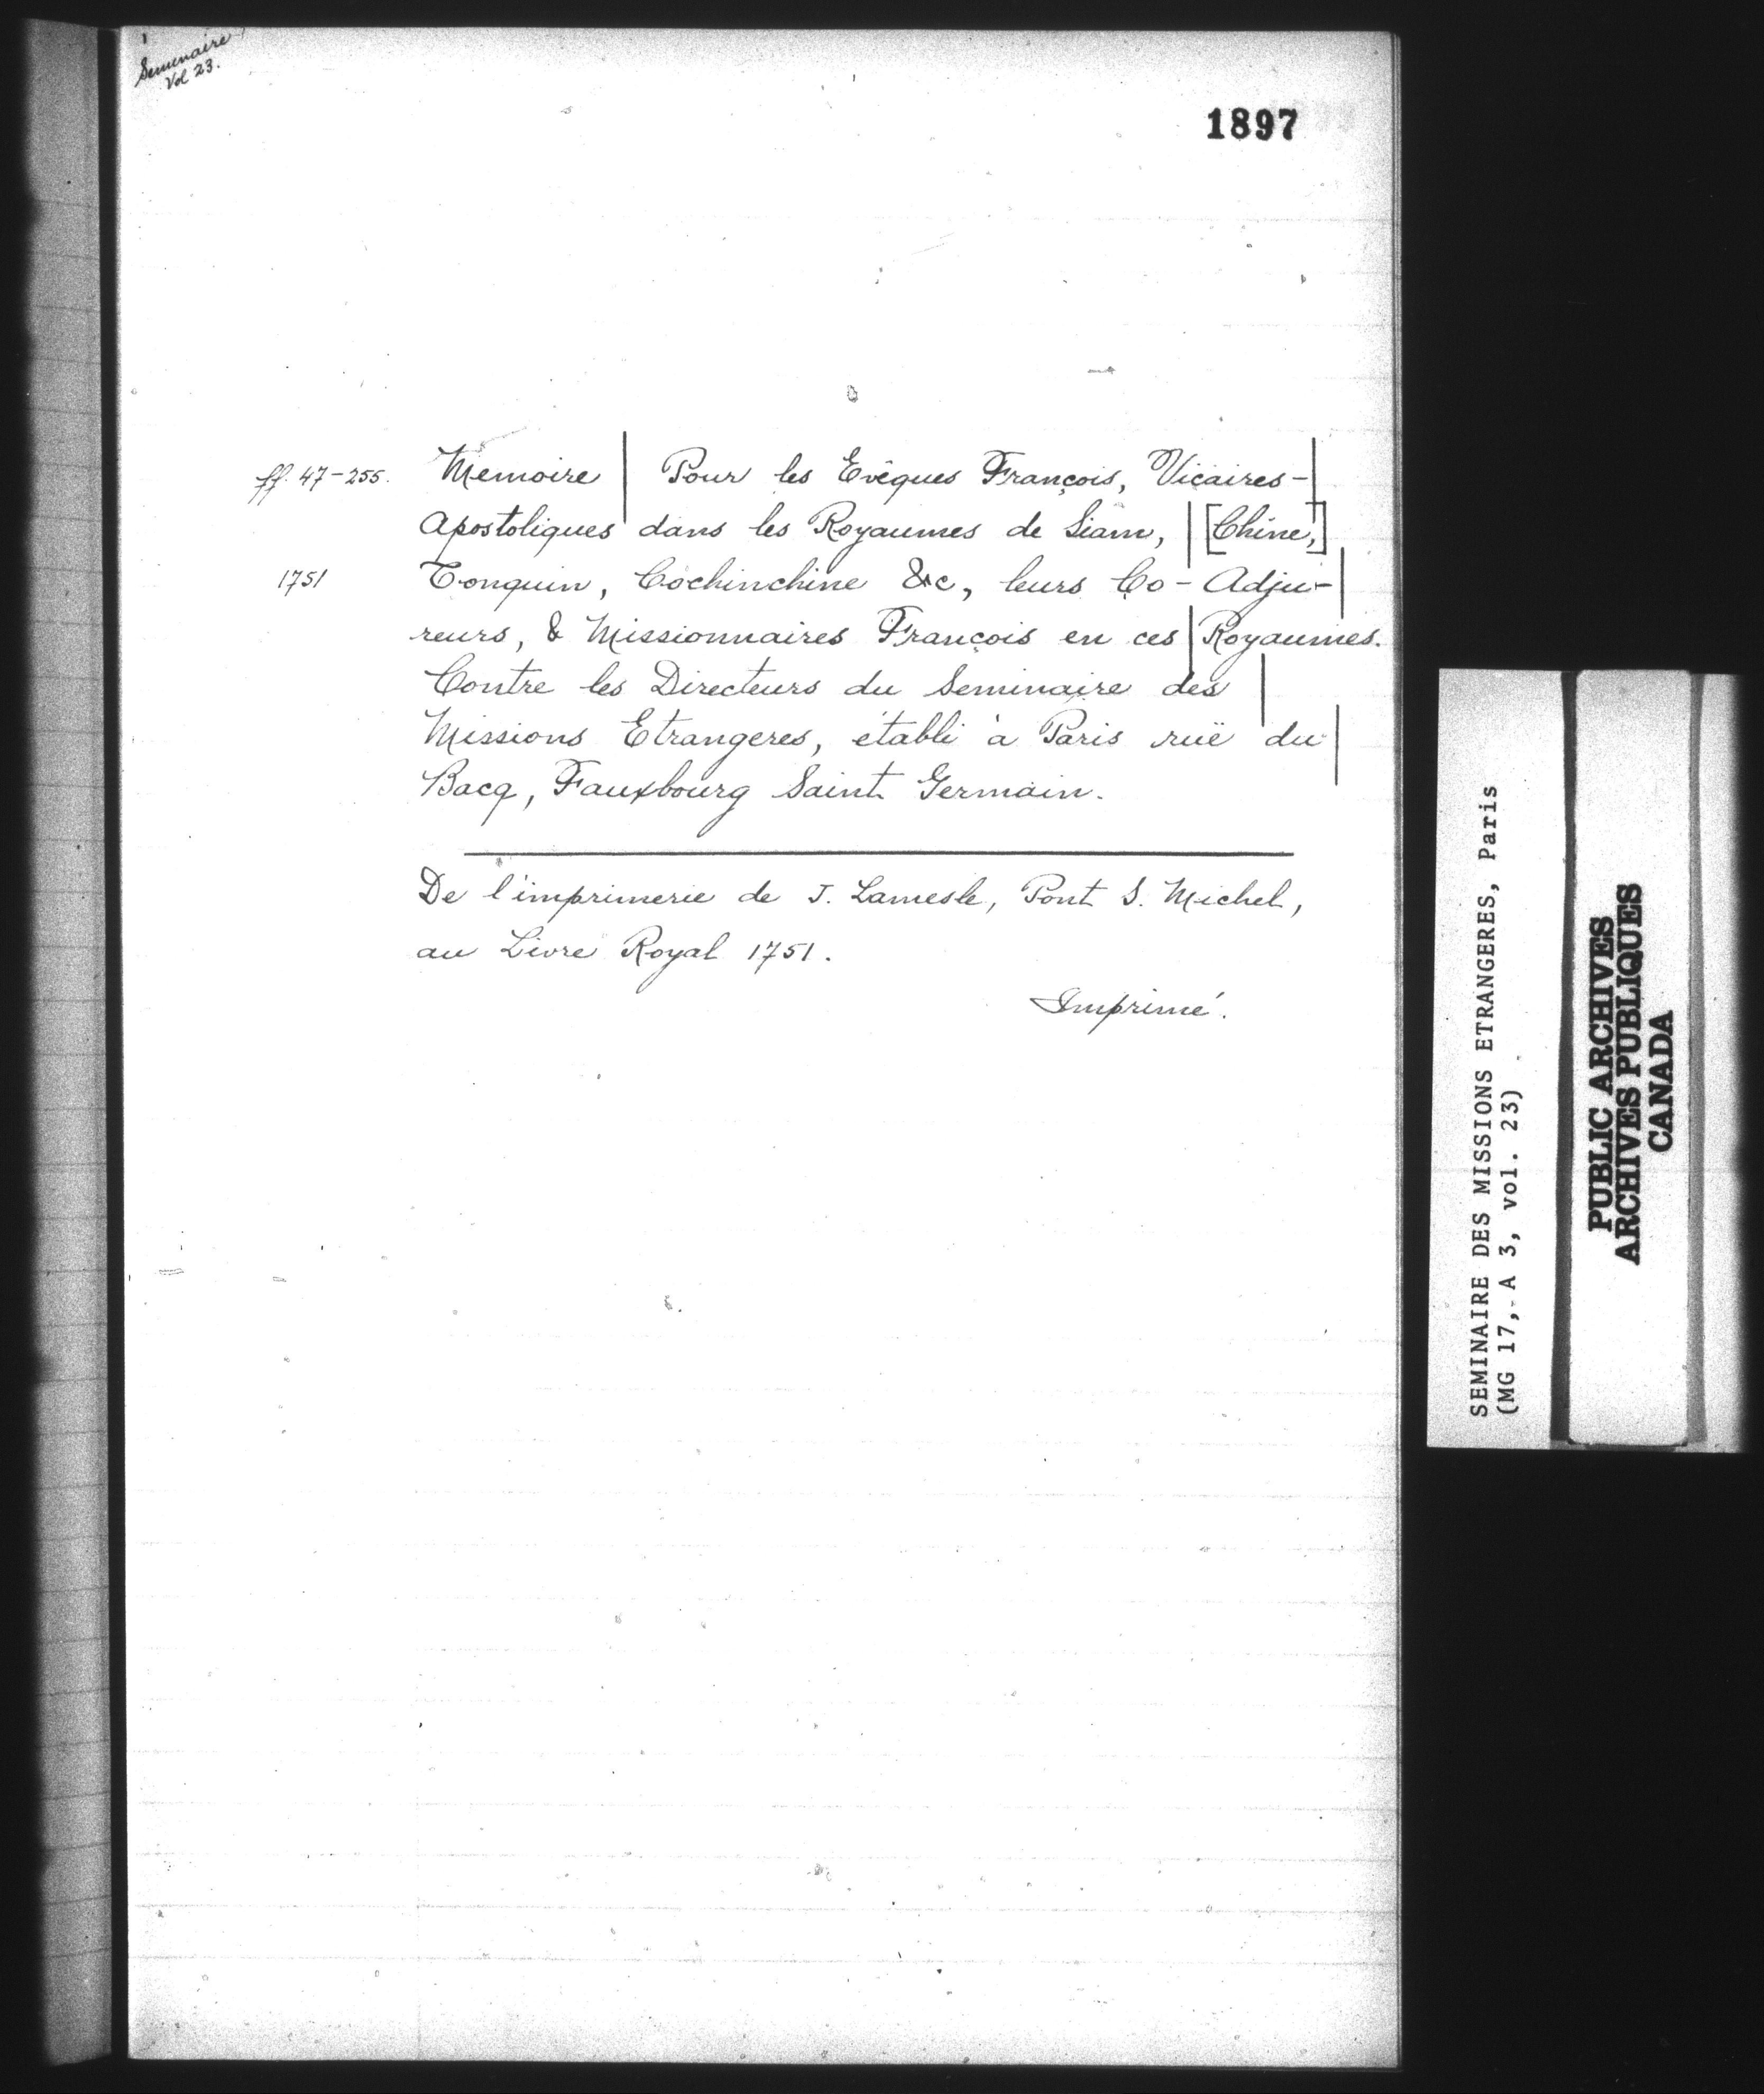 Seminaire
Vol 23.
1897
ff. 47-255. Memoire | Pour les Evêques François, Vicaires-|
Apostoliques dans les Royaumes de Siam, | [Chine,]
1751 Tonquin, Cochinchine &c, leurs Co-Adju-|
reurs, & Missionnaires François en ces | Royaumes.
Contre les Directeurs du Seminaire des |
Missions Etrangeres, établi à Paris ruë du |
Bacq, Fauxbourg Saint Germain.
De l'imprimerie de J. Lamesle, Pont S. Michel,
au Livre Royal 1751.
Imprimé.
SEMINAIRE DES MISSIONS ETRANGERES, Paris
(MG 17, A 3, vol. 23)
PUBLIC ARCHIVES
ARCHIVES PUBLIQUES
CANADA